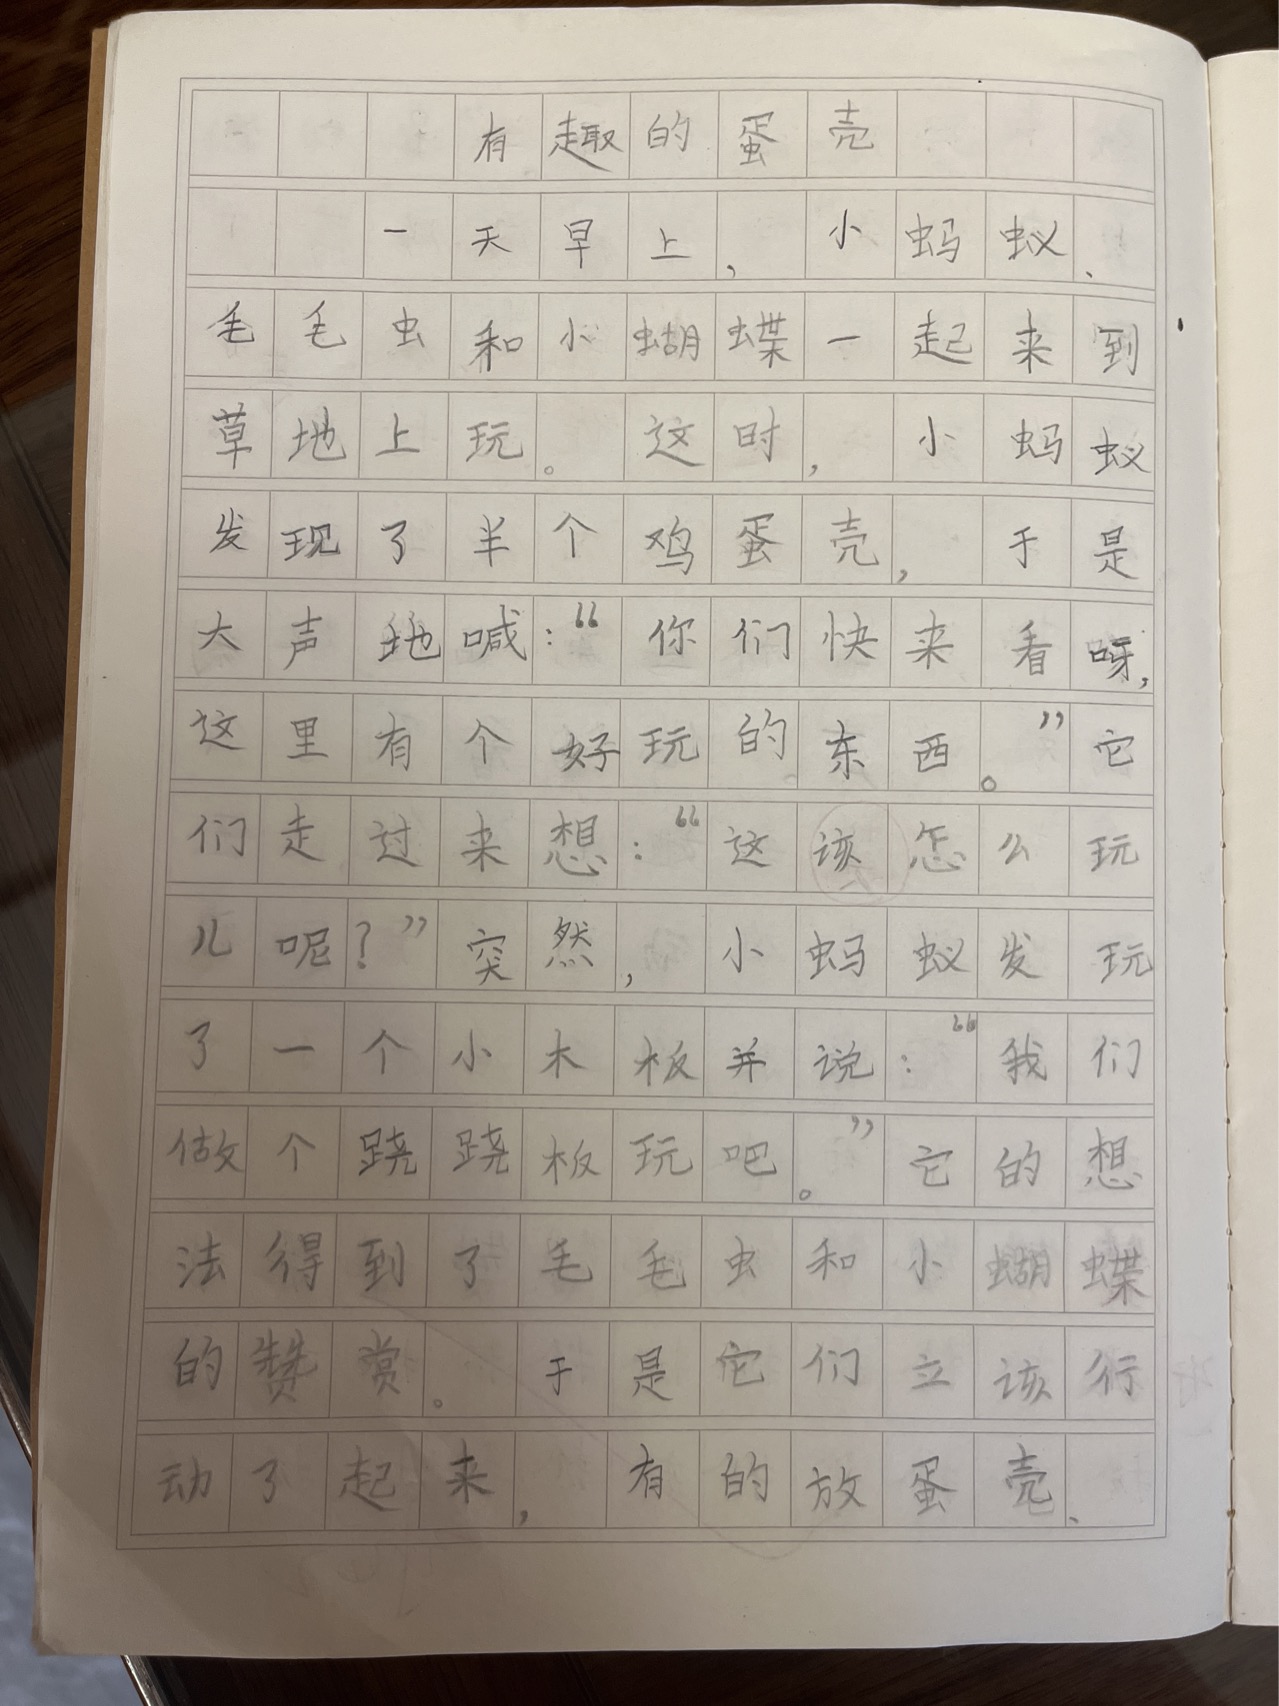 有趣的蛋壳
一天早上，小蚂蚁、
毛毛虫和小蝴蝶一起来到
草地上玩。这时，小蚂蚁
发现了半个鸡蛋壳，于是
大声地喊：“你们快来看呀，
这里有个好玩的东西。”它
们走过来想：“这该怎么玩
儿呢？”突然，小蚂蚁发玩
了一个小木板并说：“我们
做个跷跷板玩吧。”它的想
法得到了毛毛虫和小蝴蝶
的赞赏。于是它们立该行
动了起来，有的放蛋壳、